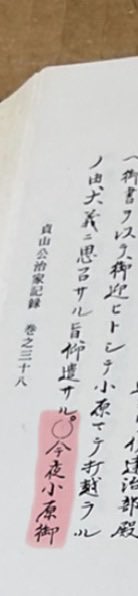 ヘ御書ヲ以テ御迎ヒトシテ小原マテ打越ラル
ノ由大義ニ思召サル旨仰遣サル。○今夜小原御
貞山公治家記録 巻之三十八